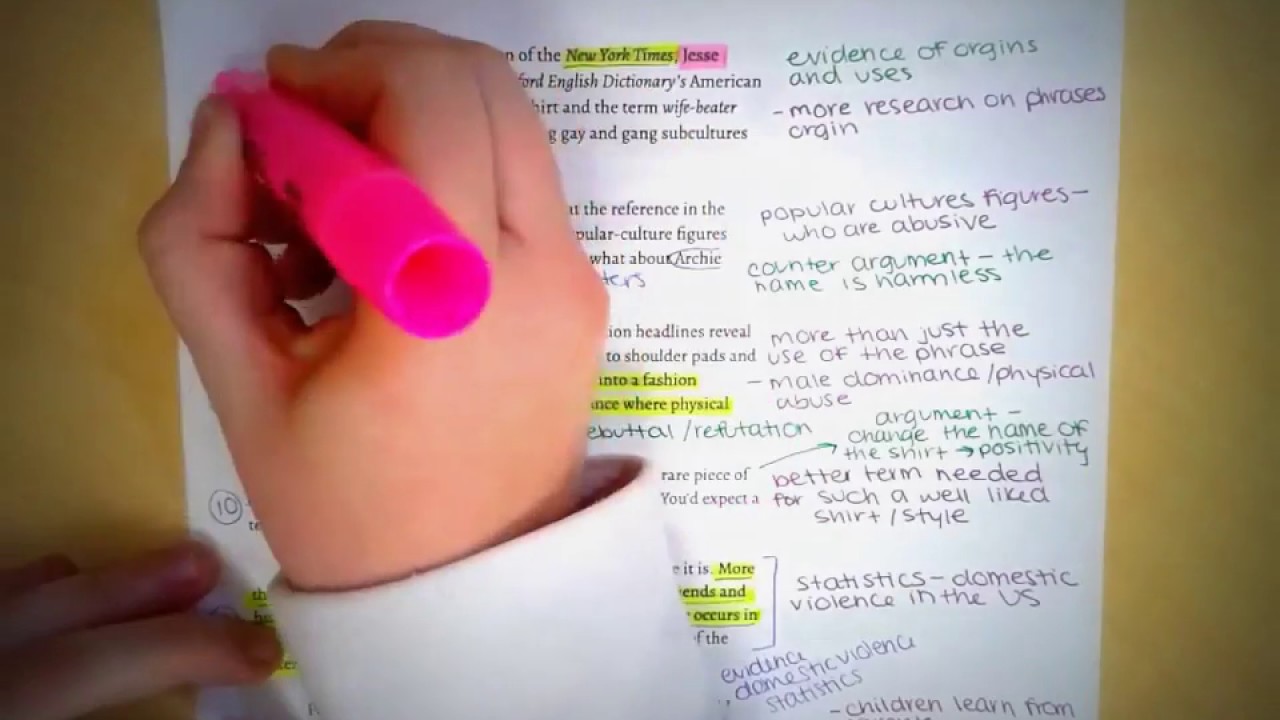 of the New York Times, Jesse
evidence of orgins
and uses
ford English Dictionary's American
hirt and the term wife-beater
- more research on phrases
orgin
g gay and gang subcultures
the reference in the
popular cultures figures-
who are abusive
pular-culture figures
what about Archie
counter argument - the
name is harmless
ters
ion headlines reveal
more than just the
use of the phrase
to shoulder pads and
into a fashion
- male dominance/physical
abuse
nce where physical
ebuttal/refutation
argument -
change the name of
the shirt → positivity
rare piece of
better term needed
You'd expect a
for such a well liked
shirt/style
10
te
e it is. More
statistics - domestic
violence in the US
th
ends and
occurs in
f the
evidence
domestic violence
statistics
- children learn from